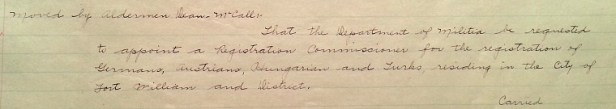 Moved by Aldermen Dean - McCall:
That the Department of Militia be requested
to appoint a Registration Commissioner for the registration of
Germans, Austrians, Hungarian and Turks, residing in the City of
Fort William and District.
Carried